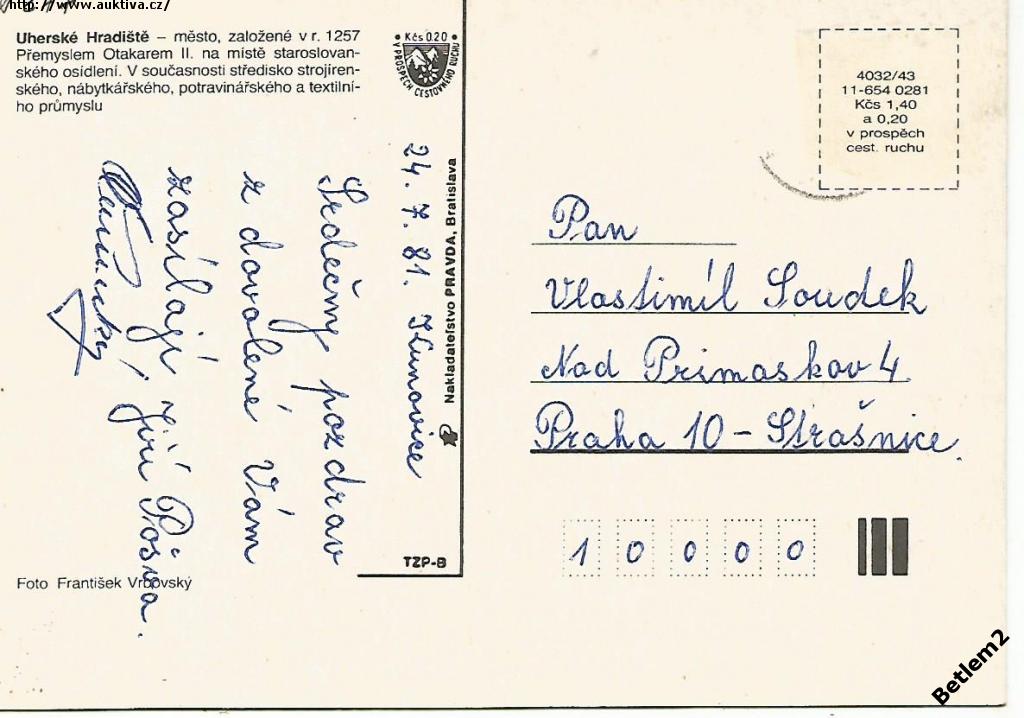 http://www.auktiva.cz/
Uherské Hradiště – město, založené v r. 1257
Přemyslem Otakarem II. na místě staroslovan-
ského osídlení. V současnosti středisko strojíren-
ského, nábytkářského, potravinářského a textilní-
ho průmyslu
Kčs 0.20
V PROSPĚCH CESTOVNÉHO RUCHU
4032/43
11-654 0281
Kčs 1,40
a 0,20
v prospěch
cest. ruchu
24. 7. 81. Kunovice
Srdečný pozdrav
z dovolené Vám
zasílají Jiří
Nakladatelstvo PRAVDA, Bratislava
TZP-B
Foto František Vrbovský
Pan
Vlastimíl Soudek
Nad Primaskou 4
Praha 10 – Strašnice.
1 0 0 0 0
Betlem2